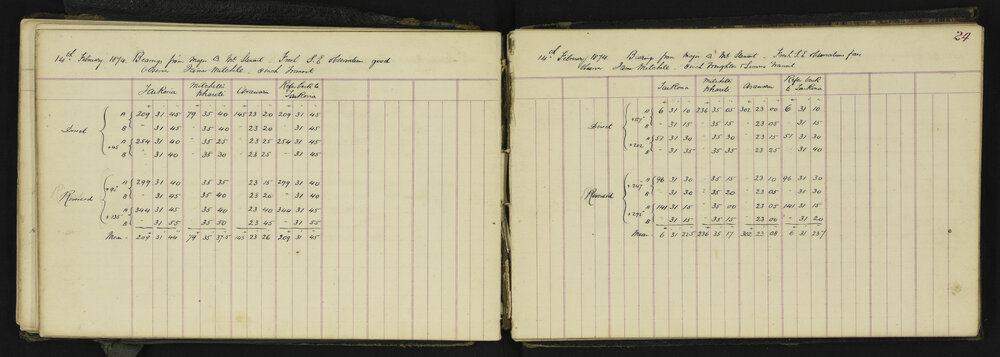 14th February 1874. Bearings from Major B Mt Stewart. Fresh S.E Observation good
Observer Steven Mitchell. 8 inch Transit
Taukona Mitchell's Wharele Refer back to Taukona
A 209 31 45 79 35 40 145 23 20 209 31 45
Direct B " 31 45 " 35 40 " 23 20 " 31 45
+45° A 254 31 40 " 35 25 " 23 25 254 31 45
B " 31 40 " 35 30 " 23 25 " 31 45
+90° A 299 31 40 35 35 23 15 299 31 40
Reversed B " 31 45 35 40 23 20 " 31 40
+135° A 344 31 45 " 35 40 23 40 344 31 45
B " 31 55 " 35 50 23 45 " 31 55
Mean 209 31 44 79 35 37.5 145 23 26 209 31 45
24
14th February 1874. Bearings from Major B Mt Stewart. Fresh S.E Observation fair
Observer Steven Mitchell. 8 inch Troughton & Simms Transit
Taukona Mitchell's Wharele Refer back to Taukona
A 6 31 10 236 35 05 302 23 00 6 31 10
Direct +157° B " 31 15 " 35 15 23 05 " 31 15
+202 A 51 31 30 " 35 30 23 15 51 31 30
B " 31 35 " 35 35 23 25 " 31 40
+247 A 96 31 30 35 15 23 10 96 31 30
Reversed B " 31 30 " 35 20 23 05 " 31 30
+292 A 141 31 15 " 35 00 23 05 141 31 15
B " 31 15 " 35 15 23 00 " 31 20
Mean 6 31 22.5 236 35 17 302 23 08 6 31 23.7